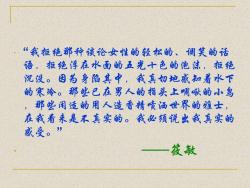 “我拒绝那种谈论女性的轻松的、调笑的话
语，拒绝浮在水面的五光十色的泡沫，拒绝
沉没。因为身临其中，我真切地感知着水下
的寒冷。那些已在男人的指头上啁啾的小鸟
，那些闲适的用人造香精喷洒世界的雅士，
在我看来是不真实的。我必须说出我真实的
感受。”
——筱敏